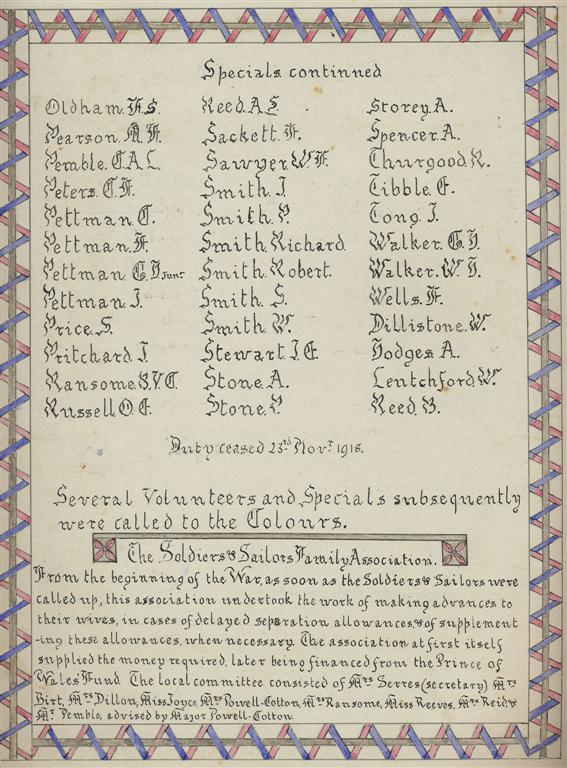 Specials continued
Oldham. F. S.
Pearson. A. F.
Pemble. C. A. L.
Peters. C. F.
Pettman. C.
Pettman. F.
Pettman. G. H Junr
Pettman. J.
Price. S.
Pritchard. J.
Ransome. S. V C.
Russell. O. E.
Reed. A. S.
Sackett. F.
Sawyer. W. F.
Smith. J
Smith. P.
Smith Richard.
Smith Robert.
Smith. S.
Smith. W.
Stewart. J. E.
Stone. A.
Stone. P.
Storey. A.
Spencer. A.
Thurgood. R.
Tibble. E.
Tong. J.
Walker. G. H.
Walker. W. H.
Wells. F.
Dillistone. W.
Hodges A.
Lentchford. W.
Reed. B.
Duty ceased 23rd Novr 1918.
Several Volunteers and Specials subsequently
were called to the Colours.
The Soldiers & Sailors Family Association.
From the beginning of the War, as soon as the Soldiers & Sailors were
called up, this association undertook the work of making advances to
their wives, in cases of delayed separation allowances, & of supplement
-ing these allowances, when necessary. The association at first itself
supplied the money required, later being financed from the Prince of
Wales Fund. The local committee consisted of Mrs Serres (secretary) Mrs
Birt, Mrs Dillon, Miss Joyce, Mrs Powell-Cotton, Mrs Ransome, Miss Reeves, Mrs Reid &
Mr Pemble, advised by Major Powell-Cotton.